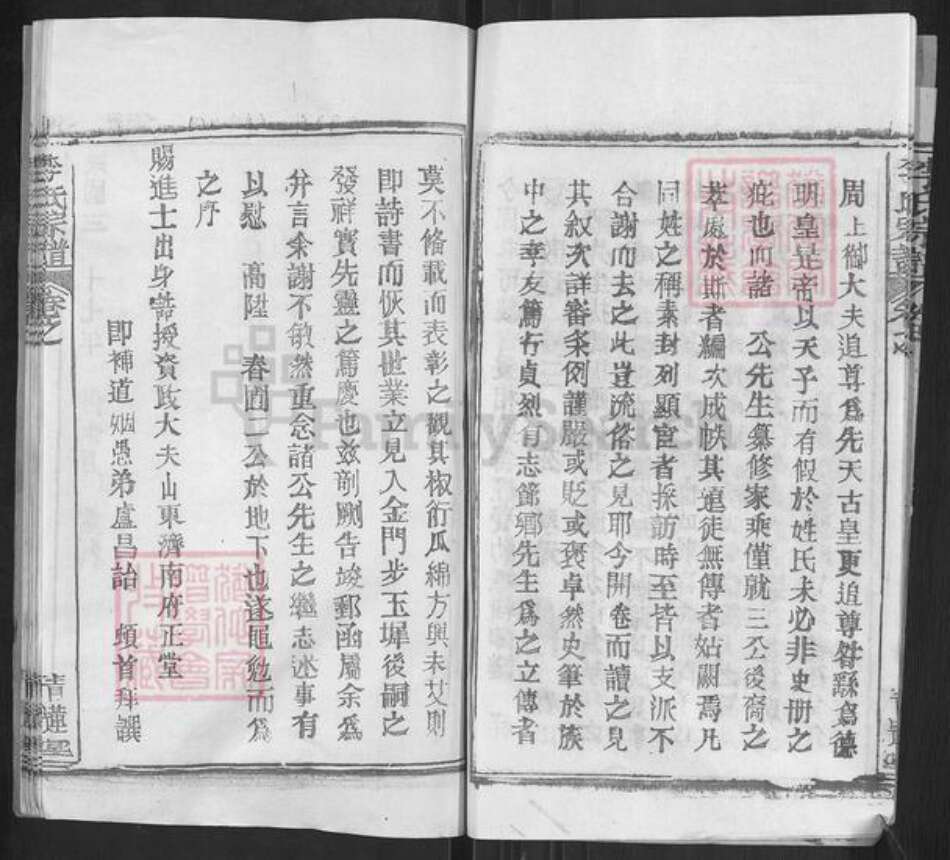 周上御大夫追尊爲先天古皇更追尊咎繇爲德
明皇是帝以天子而有假於姓氏未必非史册之
疵也而諸 公先生纂修家乘僅就三公後裔之
萃處於斯者編次成帙其遠徒無傳者姑闕焉凡
同姓之稱素封列顯宦者採訪時至皆以支派不
合謝而去之此豈流俗之見耶今開卷而讀之見
其叙次詳審条例謹嚴或貶或褒卓然史筆於族
中之孝友篤行貞烈有志節鄉先生爲之立傳者
莫不俻載而表彰之觀其椒衍瓜綿方興未艾則
即詩書而恢其世業立見入金門步玉墀後嗣之
發祥實先靈之篤慶也兹剞劂告竣郵函屬余爲
弁言余謝不敏然重念諸公先生之繼志述事有
以慰 高陞 春圃二公於地下也遂黽勉而爲
之序
賜進士出身誥授資政大夫山東濟南府正堂
即補道姻愚弟盧昌詒 頓首拜譔
李氏宗譜 卷之
青蓮堂
李氏宗譜
FamilySearch